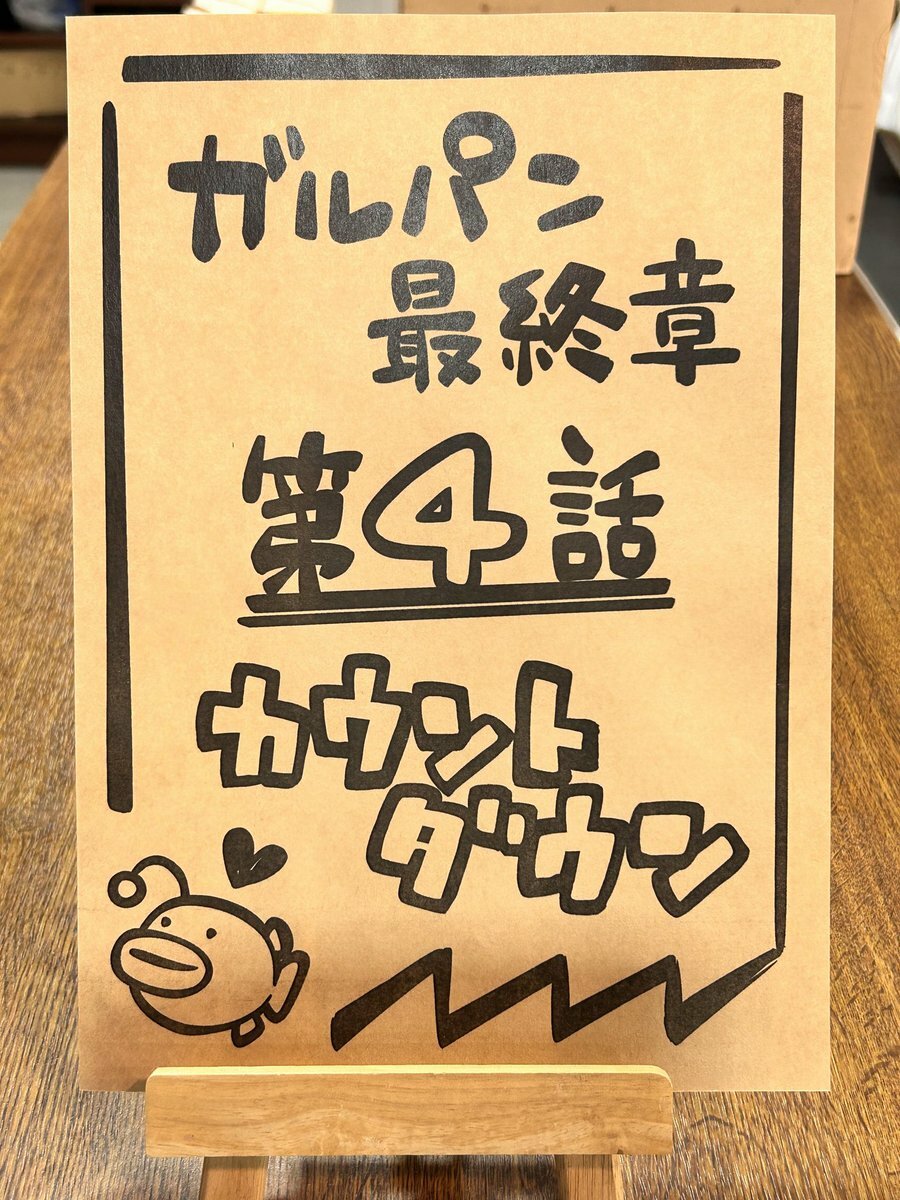 ガルパン
最終章
第4話
カウント
ダウン